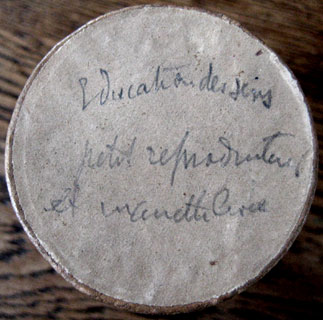 Education des sens
petit reproducteur
et